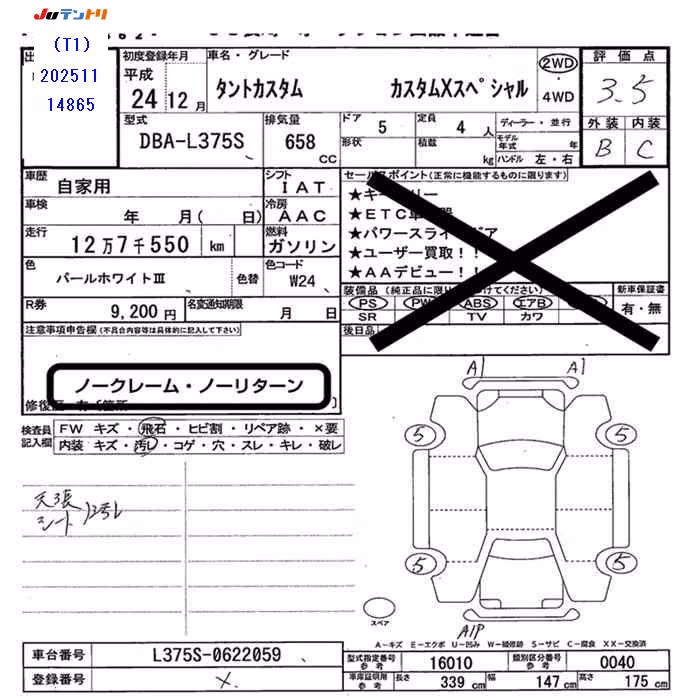 Juテントリ
(T1)
202511
14865
初度登録年月
平成
24 12月
車名・グレード
タントカスタム カスタムXスペシャル
2WD
4WD
評価点
3.5
外装 内装
B C
型式
DBA-L375S
排気量
658
CC
ドア
5
定員
4 人
形状
積載
kg
ディーラー・並行
モデル年式 年
ハンドル 左・右
車歴
自家用
シフト
IAT
車検
年 月( 日)
冷房
AAC
走行
12万7千550 km
燃料
ガソリン
色
パールホワイトIII
色替
色コード
W24
R券
9,200 円
名変通知期限
月 日
セールスポイント(正常に機能するものに限ります)
★キー
リー
★ETC車
器
★パワースライ
ドア
★ユーザー買取!!
★AAデビュー!!
装備品
(純正品に限り
けてください)
PS PW ABS エアB
SR TV カワ
新車保証書
有・無
後日品
注意事項申告欄(不具合内容等は具体的に記入して下さい)
ノークレーム・ノーリターン
修復歴
検査員記入欄
FW キズ・飛石・ヒビ割・リペア跡・×要
内装 キズ・汚レ・コゲ・穴・スレ・キレ・破レ
天張
シート
汚レ
A1 A1
5 5
5 5
A1P
スペア
A-キズ E-エクボ U-凹み W-補修跡 S-サビ C-腐食 XX-交換済
車台番号
L375S-0622059
登録番号
×
型式指定番号 参考
16010
類別区分番号 参考
0040
車庫証明用 参考
長さ 339 cm
幅 147 cm
高さ 175 cm